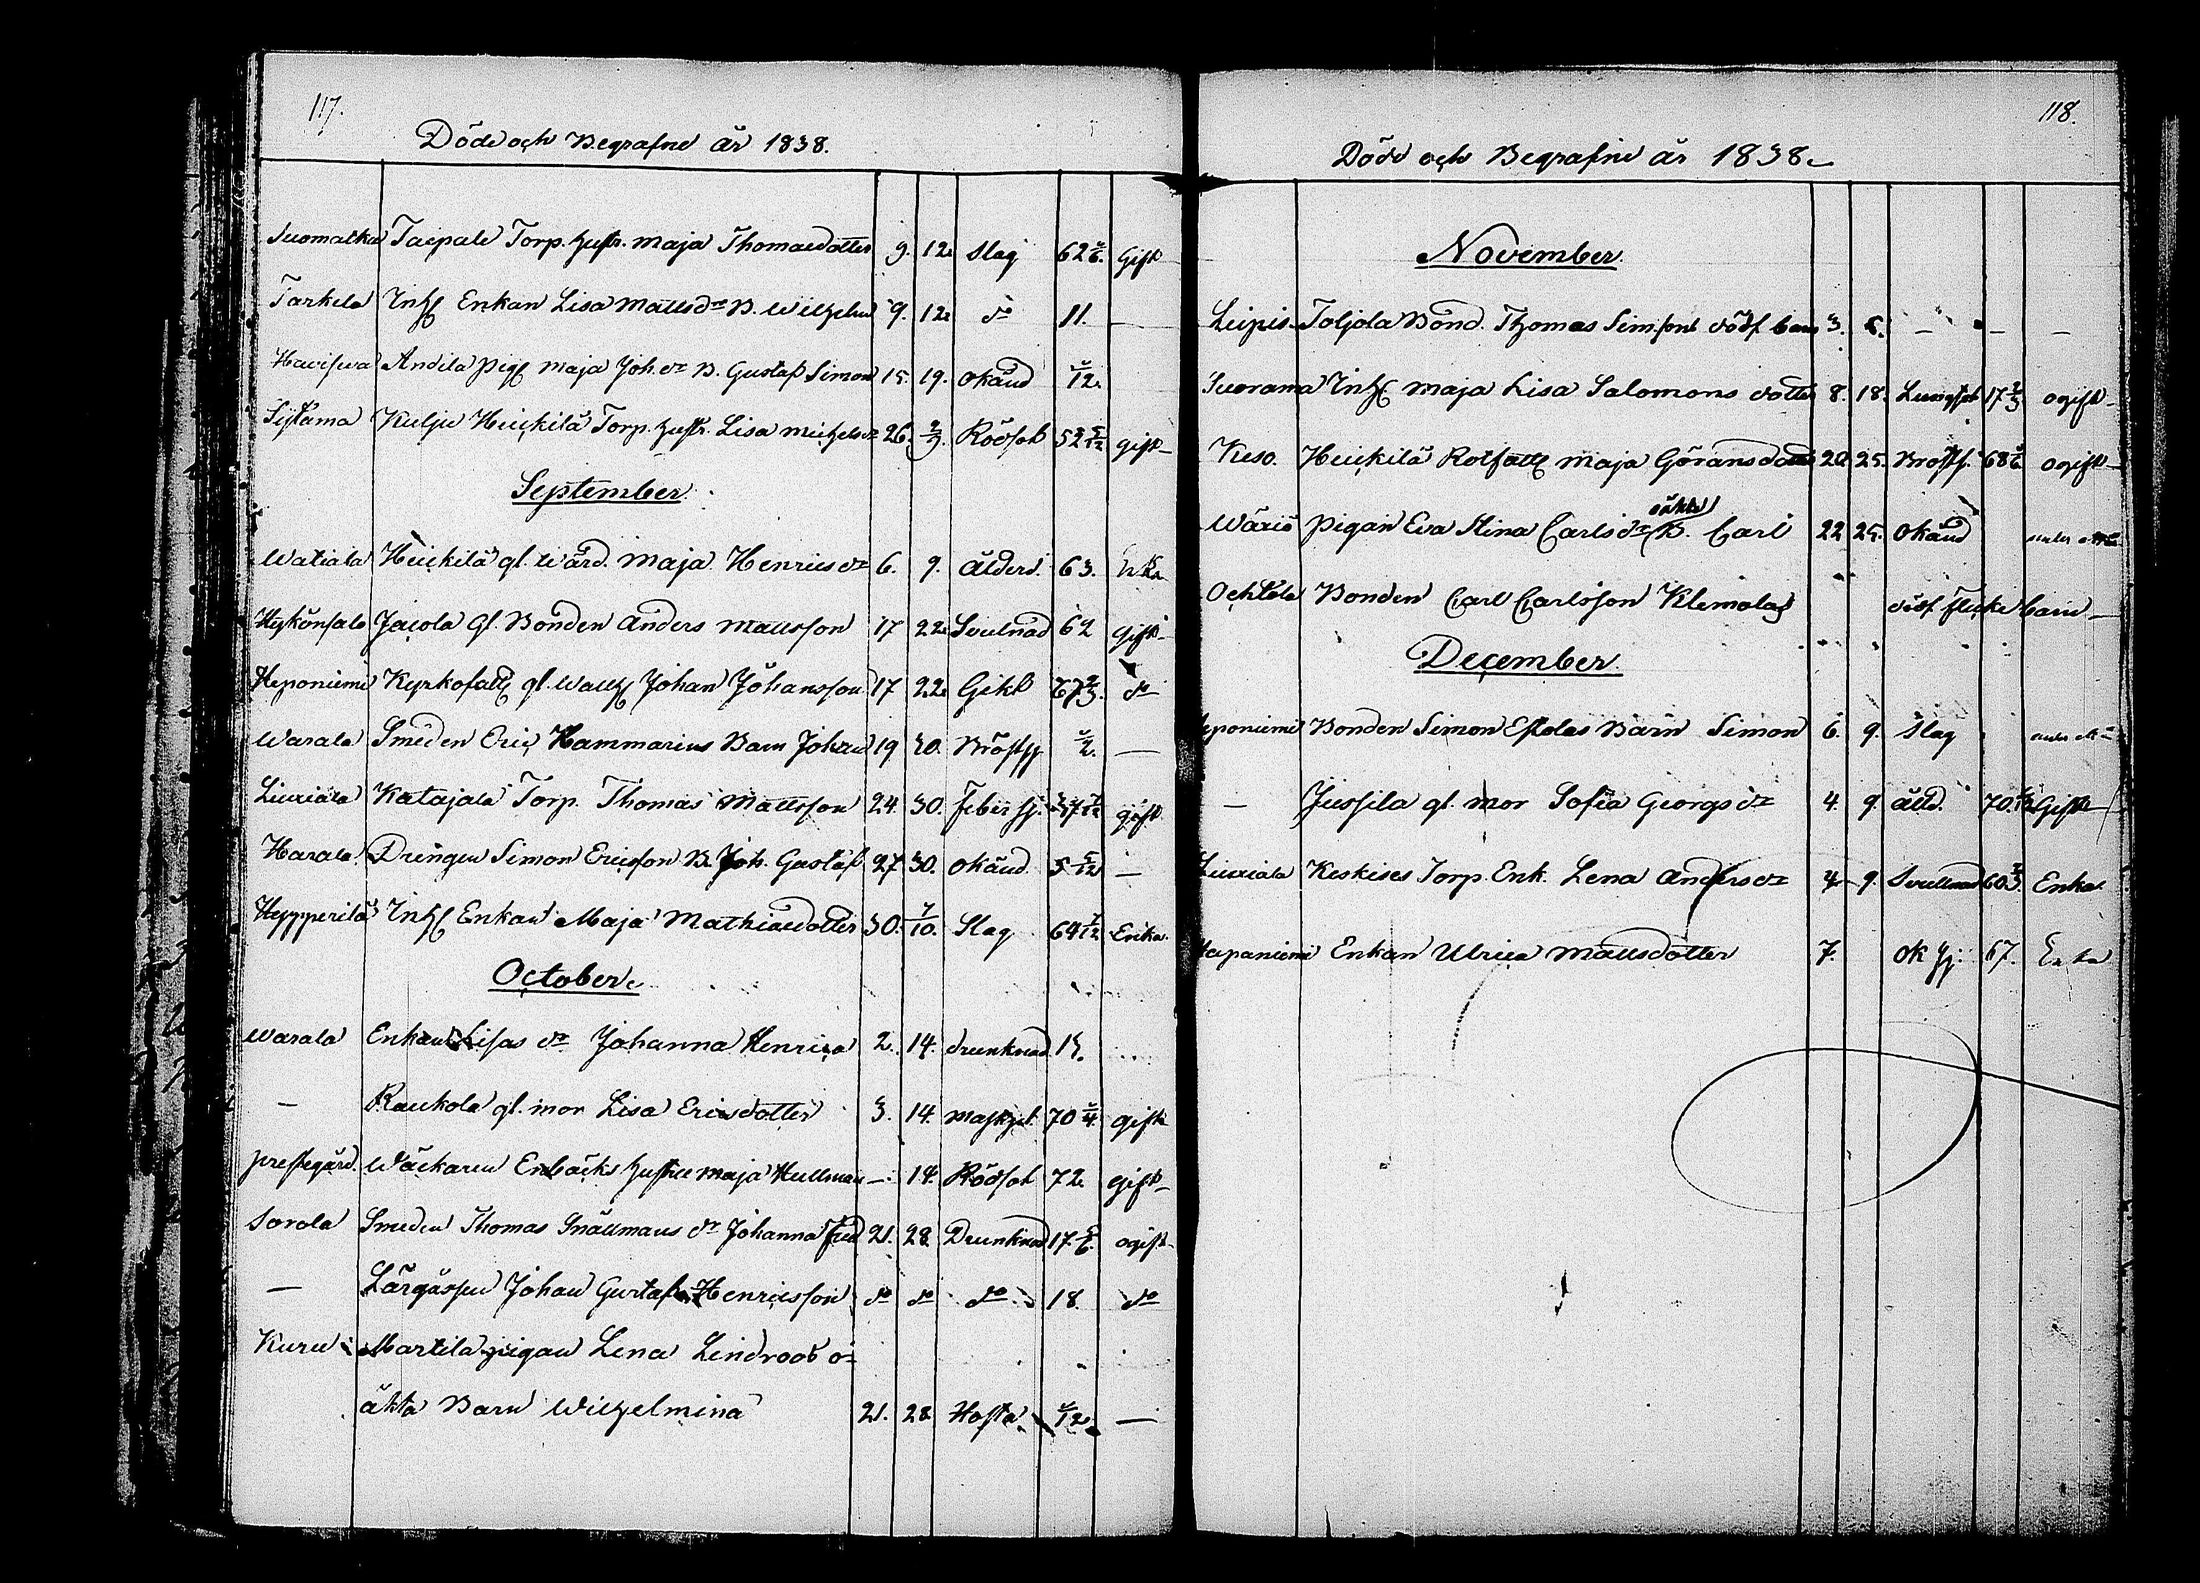 117.
Döde och Begrafne år 1838.
Suomatka Taipale Torp. hustr. Maja Thomasdotter 9. 12. Slag 62 Gift
Tarkela Inh Enkan Lisa Mattsdr B. Wilhelm 9. 12. do 11. —
Havisuva Andila Pig Maja Joh. dr B. Gustaf Simon 15. 19. okänd 12.
Sijtama Kulju Heickilä Torp. hustr. Lisa Michelsdr 26. 2/9. Rödsot 52 5/12 gift
September
Watiala Heickilä gl. Wärd. Maja Henricsdr 6. 9. Ålderd. 63. Enka
Hyköнsalo Jacola Gl. Bonden Anders Mattsson 17 22. Svulnad 62 gift
Heponiemi Kyrkofatt gl. Wallh Johan Johansson 17 22. Gikt 67 2/3. do
Warala Smeden Eric Hammarins Barn Johan 19 30. Bröstsj 2. —
Liuxiala Katajala Torp. Thomas Mattsson 24. 30. Feber sj. 37 7/12 gift
Harala. Drengen Simon Ericsson B. Joh. Gustaf 27. 30. okänd 5 5/12 —
Hypperilä Inh Enkan Maja Mathiaedotter 30. 7/10. Slag 64 7/12 Enka.
October.
Warala Enkan Lisas dr Johanna Henrica 2. 14. drunknad 15.
— Raukola gl. mor Lisa Ericsdotter 3. 14. 70 gift
prestegård. Wäckaren Enbäcks hustru Maja Hullman — 14. Rödsot 72. gift
Sorola Smeden Thomas Snällmans dr Johanna Fred 21. 28. Drunknad 17. 5/6. ogift
— Lärgåssen Johan Gustaf Henricsson do do do 18. do
Kuru Martila pigan Lena Lindroos o=
äkta Barn Wilhelmina 21. 28. Hosta 12. —
118.
Döde och Begrafne år 1838.
November.
Leipis Toljola Bond. Thomas Simsons dödf. barn 3. — — —
Suorama Inh Maja Lisa Salomons dotter 8. 18. Lungsot 17 2/3 ogift
Keso. Heickilä Rotfatt Maja Göransdotter 20. 25. Bröstsj. 68 ogift
oäkta
Wäxiö pigan Eva Stina Carlsdr B. Carl 22 25. okänd
Ochtola Bonden Carl Carlsson Klemolas dödf flicke barn —
December.
eponiemi Bonden Simon Eskolas Barn Simon 6. 9. Slag
— Jussila gl. mor Sofia Georgsdr 4. 9. ålld. 70. Gift
Liuxiala Keskises Torp. Enk. Lena Andersdr 4 9. Svullnad 60 2/3 Enka.
Haapaniemi Enkan Ulrica Mattsdotter 7. ok sj. 67. Enka